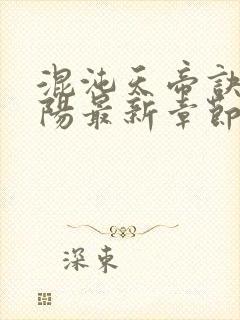 混沌天帝诀
陽最新章節
深東